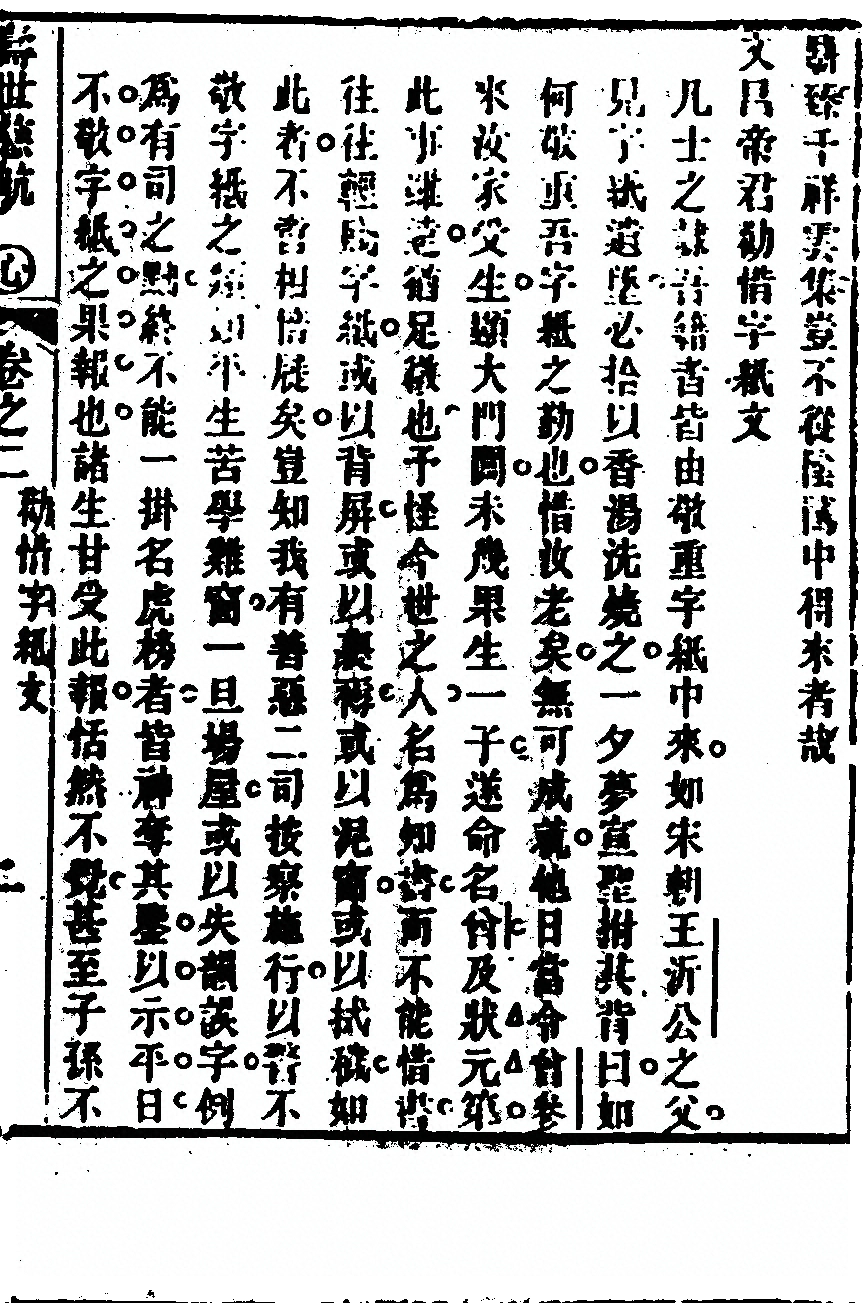 駢臻千祥雲集豈不從陰隲中得來者哉
文昌帝君勸惜字紙文
凡士之隸吾籍者皆由敬重字紙中來如宋朝王沂公之父
見字紙遺墜必拾以香湯洗燒之一夕夢宣聖拊其背曰如
何敬重吾字紙之勤也惜汝老矣無可成就他日當令曾參
來汝家受生顯大門閭未幾果生一子遂命名曾及狀元第
此事雖遠猶足徵也予怪今世之人名爲知書而不能惜書
往往輕賤字紙或以背屏或以裹褥或以泥窗或以拭穢如
此者不啻相悟展矣豈知我有善惡二司按察施行以警不
敬字紙之類如平生苦學雞窗一旦場屋或以失韻誤字例
爲有司之黜終不能一掛名虎榜者皆神奪其鑒以示平日
不敬字紙之果報也諸生甘受此報恬然不覺甚至子孫不
壽世慈航 心 卷之二 勸惜字紙文 二